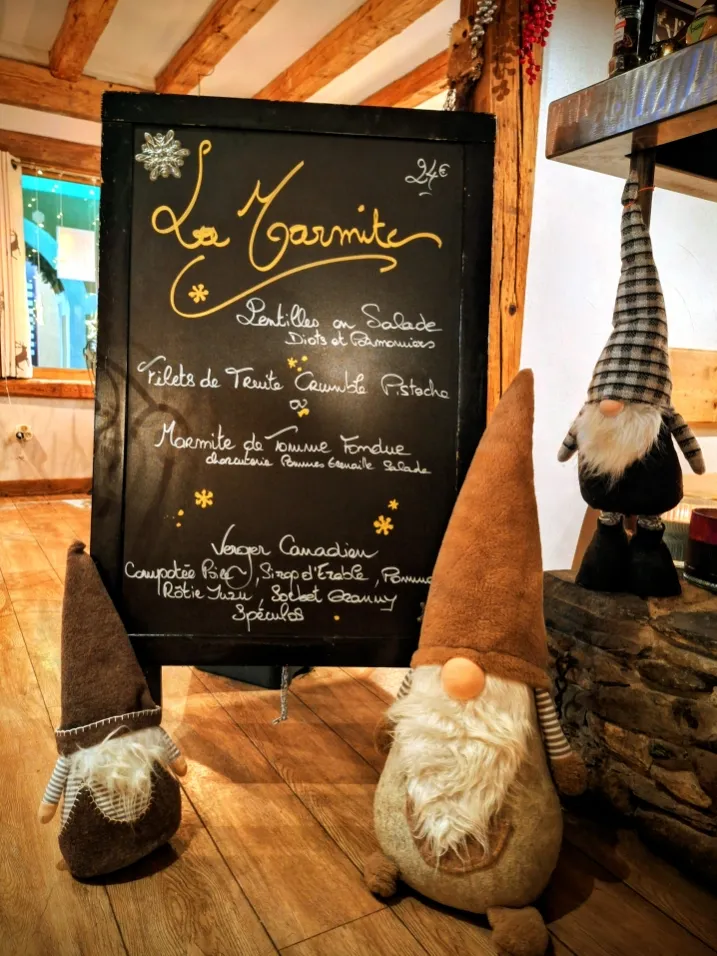 24€
La Marmite
Lentilles en Salade
Diots et
Filets de Truite Crumble Pistache
ou
Marmite de Tomme Fondue
charcuterie Pommes Grenaille Salade
Verger Canadien
Compotée , Sirop d'Erable , Pomme
Rôtie Yuzu , Sorbet Granny
Spéculos